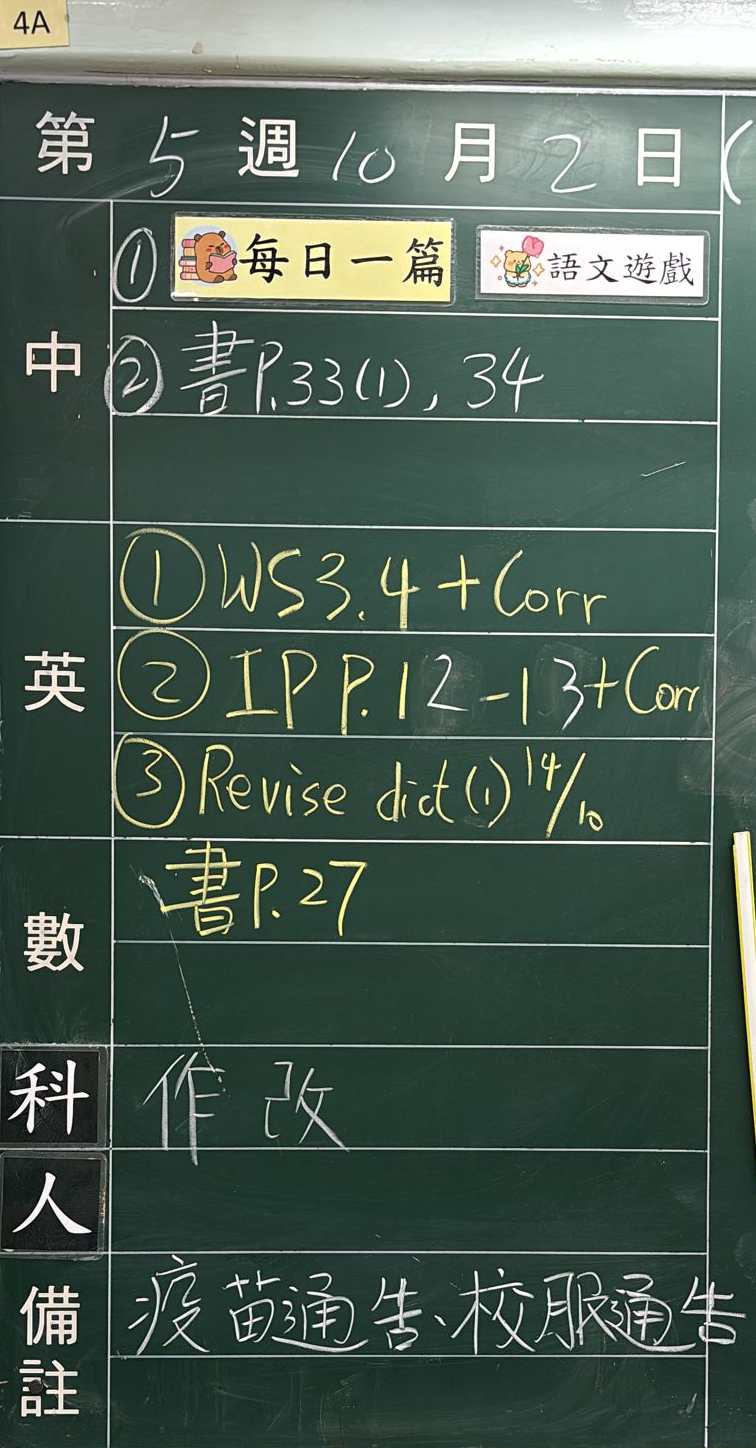 4A
第 5 週 10 月 2 日 (
中
① 每日一篇 語文遊戲
② 書P.33(1), 34
英
① WS3.4 + Corr
② IP P.12-13 + Corr
③ Revise dict(1) 14/10
數
書P.27
科
作 改
人
備註
疫苗通告、校服通告